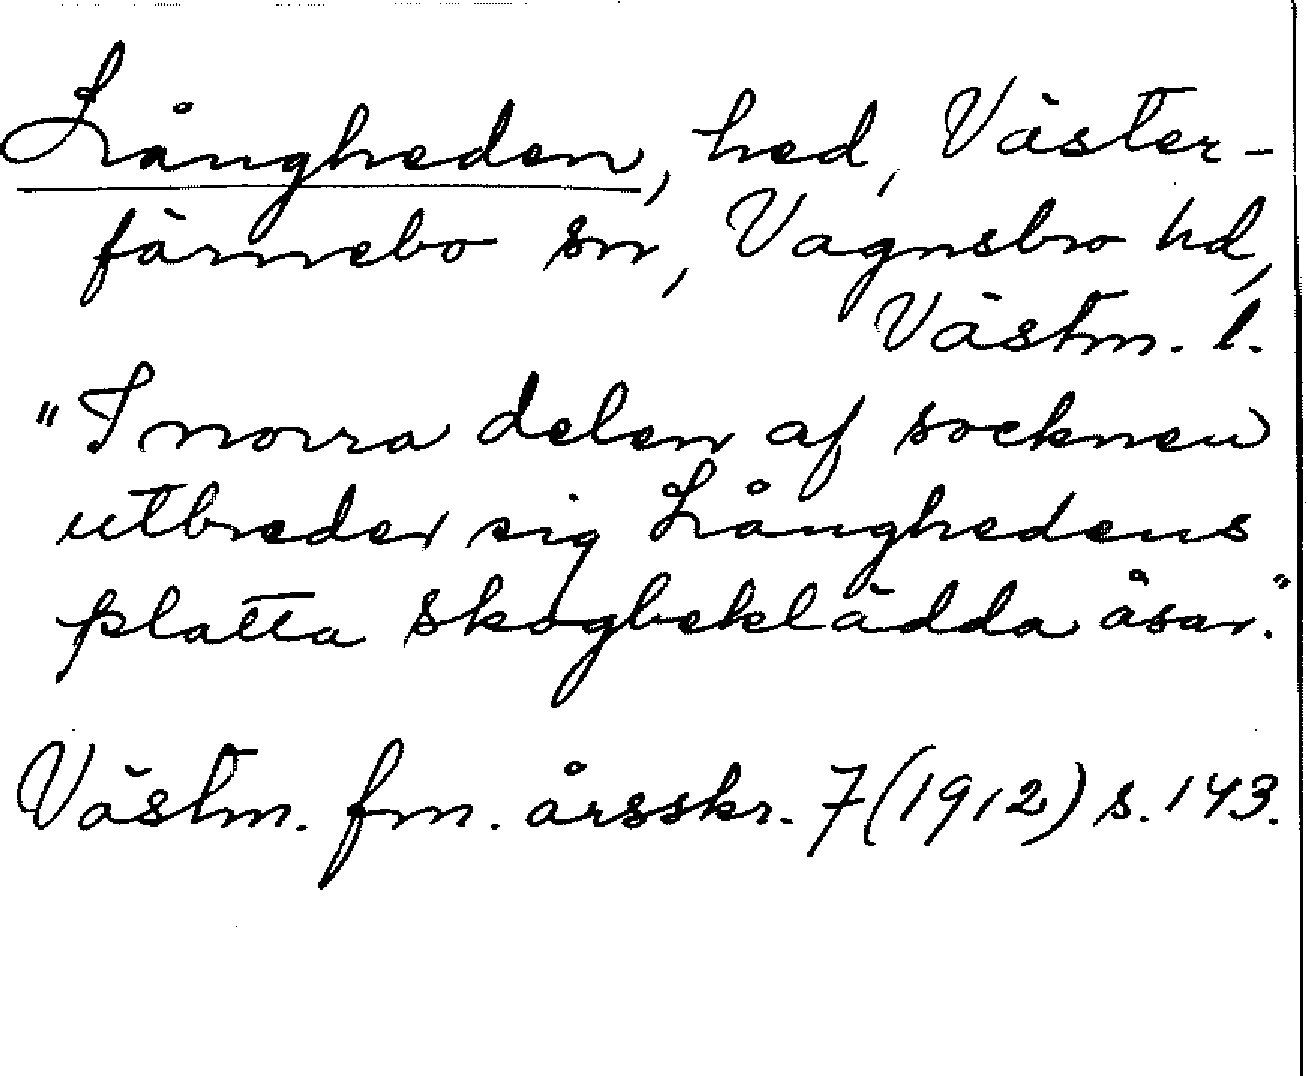 Långheden, hed, Väster-
färnebo sn, Vagnsbro hd,
Västm. l.
"I norra delen af socknen
utbreder sig Långhedens
platta skogbeklädda åsar."
Västm. fm. årsskr. 7 (1912) s. 143.